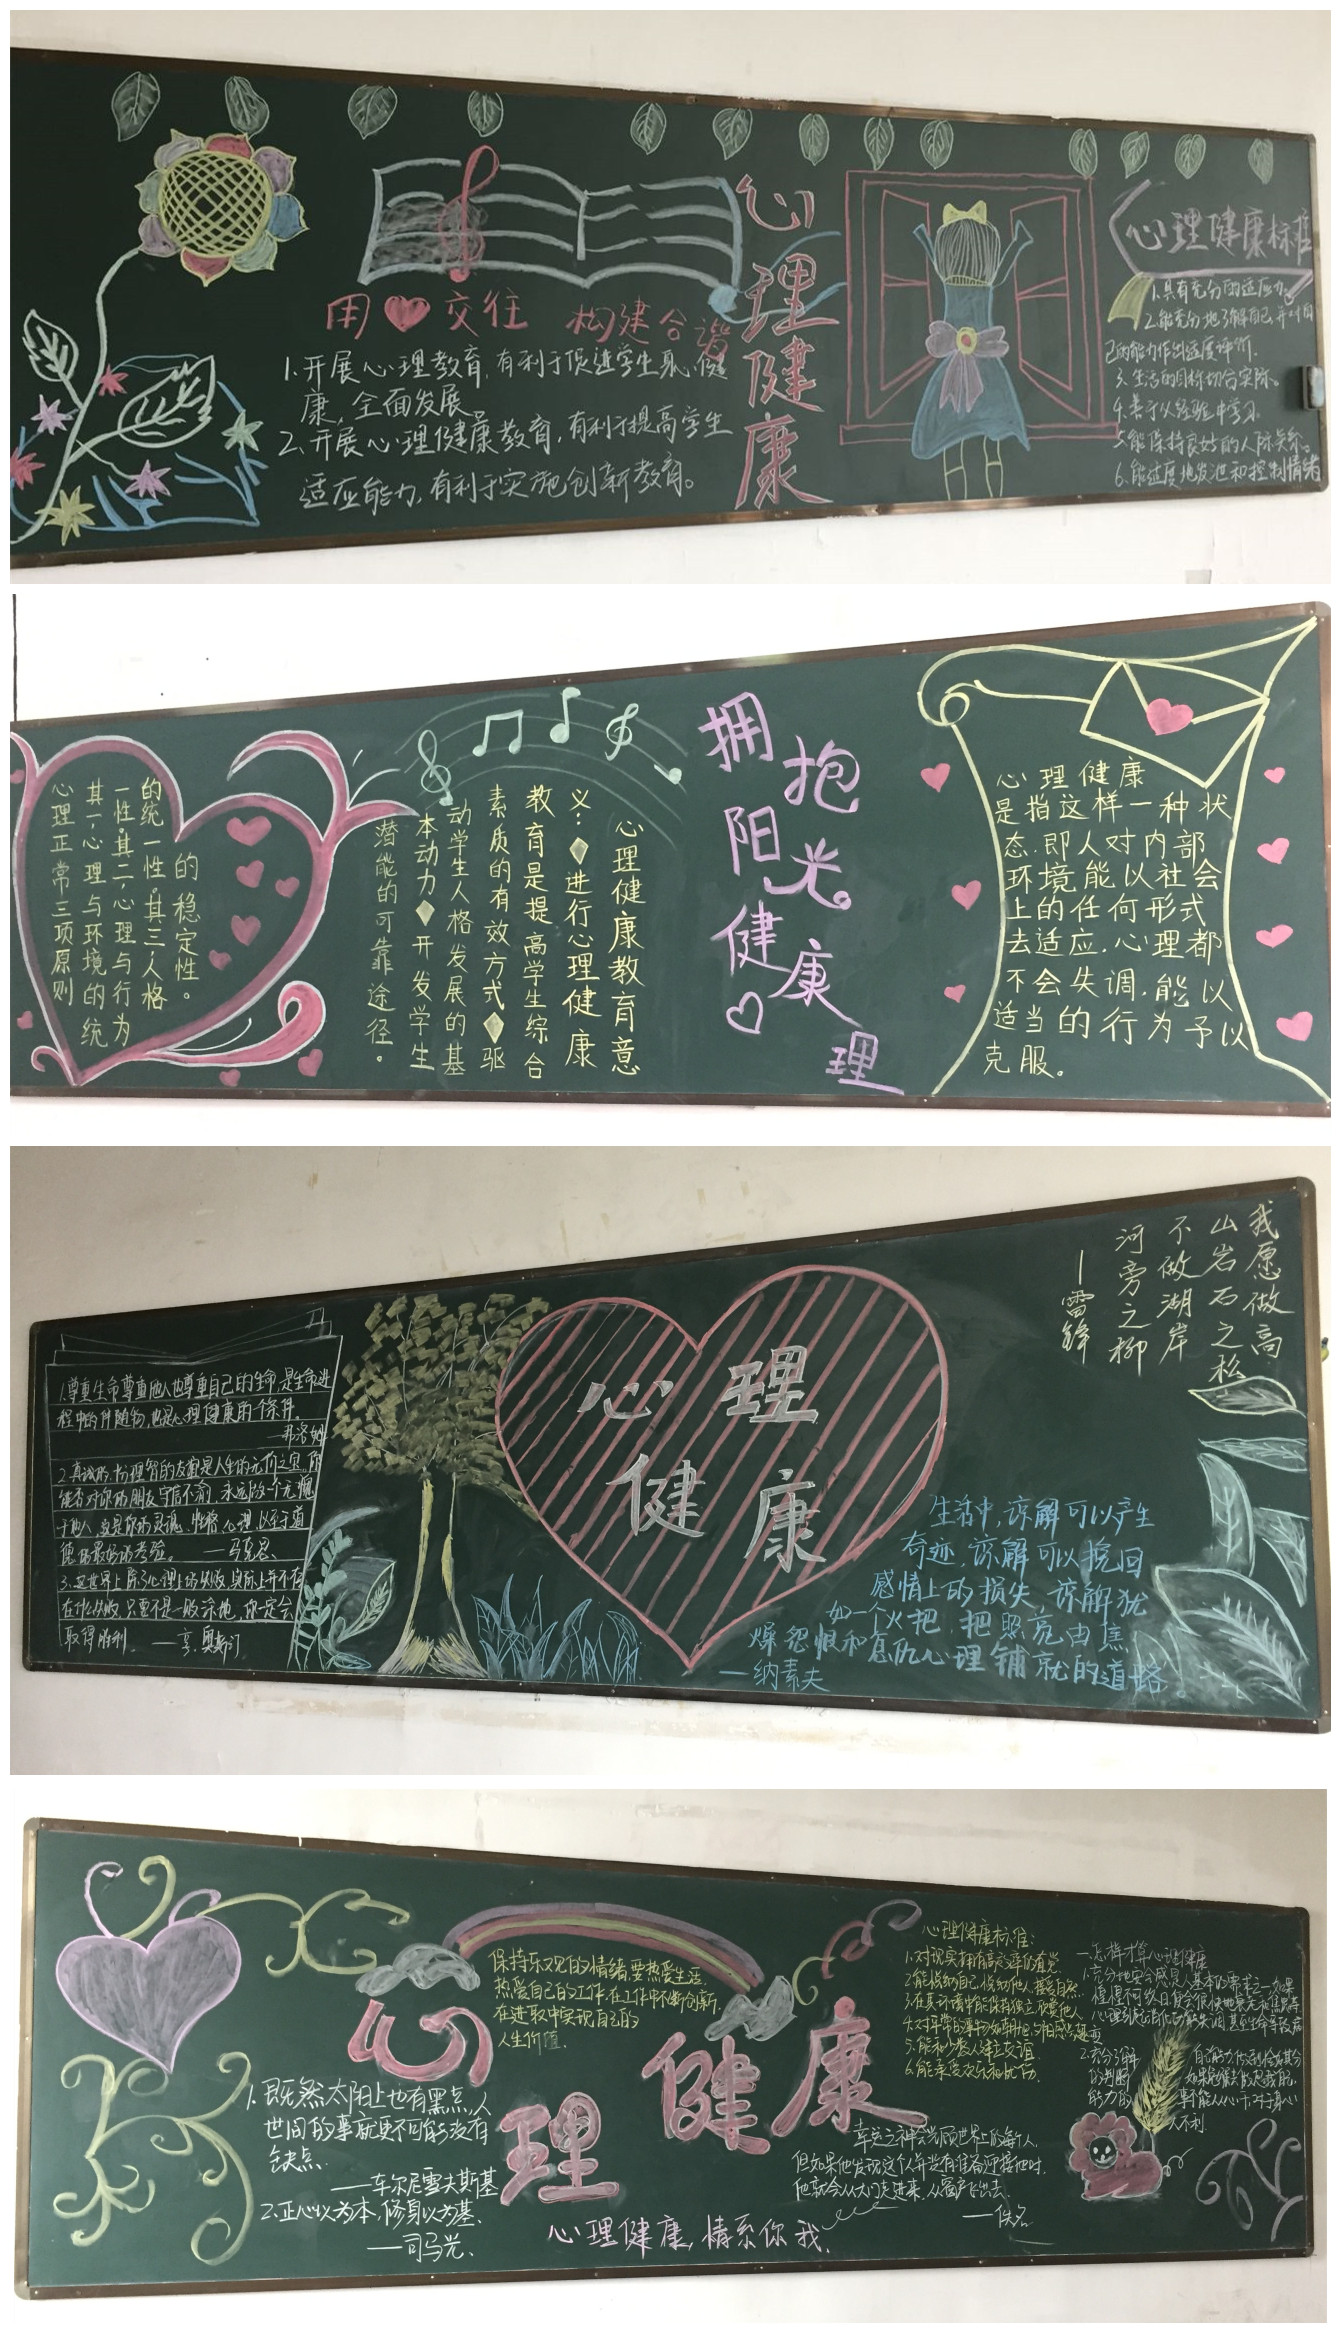 用 交往 构建合谐
1.开展心理教育,有利于促进学生身心健
康,全面发展
2.开展心理健康教育,有利于提高学生
适应能力,有利于实施创新教育。
心理健康
心理健康标准
1.具有充分的适应力
2.能充分地了解自己,并对自
己的能力作出适度评价.
3.生活的目标切合实际。
4.善于从经验中学习
5.能保持良好的人际关系。
6.能过度地发泄和控制情绪
心理正常三项原则
其一,心理与环境的统
一性.其二,心理与行为
的统一性.其三,人格
的稳定性。
心理健康教育意
义:◆进行心理健康
教育是提高学生综合
素质的有效方式◆驱
动学生人格发展的基
本动力◆开发学生
潜能的可靠途径。
拥抱
阳光
健康
理
心理健康
是指这样一种状
态.即人对内部
环境能以社会
上的任何形式
去适应.心理都
不会失调.能以
适当的行为予以
克服。
1.尊重生命尊重他人也尊重自己的生命,是生命进
程中的伴随物,也是心理健康的一个条件。
—弗洛姆
2.真诚的、十分理智的友谊是人生的无价之宝。你
能否对你的朋友守信不渝,永远做一个无愧
于他人,这是你的灵魂、性格、心理、以至于道
德的最好的考验。 —马克思、
3.这世界上除了心理上的失败,实际上并不存
在什么失败,只要不是一败涂地,你一定会
取得胜利。 —亨.奥斯汀
心理
健康
我愿做高
山岩石之松
不做湖岸
河旁之柳
—雷锋
生活中,谅解可以产生
奇迹,谅解可以挽回
感情上的损失,谅解犹
如一个火把,把照亮由焦
燥怨恨和复仇心理铺就的道路。
—纳素夫
保持乐观的情绪,要热爱生活,
热爱自己的工作,在工作中不断创新,
在进取中实现自己的
人生价值.
心理健康
1.既然太阳上也有黑点,人
世间的事就更不可能没有
缺点.
——车尔尼雪夫斯基
2.正心以为本,修身以为基、
——司马光、
心理健康,情系你我.
心理健康标准:
1.对现实拥有高效率的直觉
2.能悦纳自己,悦纳他人,接受自然
3.在真环境中能保持独立,欣赏他人
5.能和少数人建立友谊
幸运之神会光顾世界上的每个人,
但如果他发现这个人并没有准备迎接他时.
他就会从大门走进来,从窗户飞出去.
——佚名
一.怎样才算心理健康